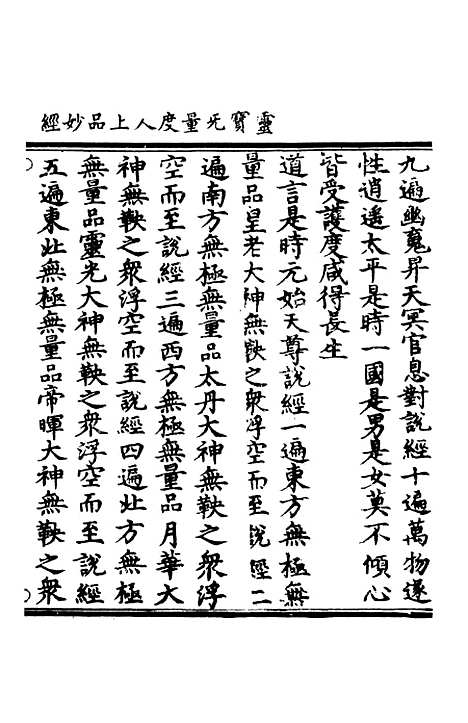 靈寶无量度人上品妙經
九遍幽䰟昇天冥官息對說經十遍萬物遂
性逍遥太平是時一國是男是女莫不傾心
皆受護度咸得長生
道言是時元始天尊說經一遍東方無極無
量品皇老大神無鞅之衆浮空而至說經二
遍南方無極無量品太丹大神無鞅之衆浮
空而至說經三遍西方無極無量品月華大
神無鞅之衆浮空而至說經四遍北方無極
無量品靈光大神無鞅之衆浮空而至說經
五遍東北無極無量品帝暉大神無鞅之衆